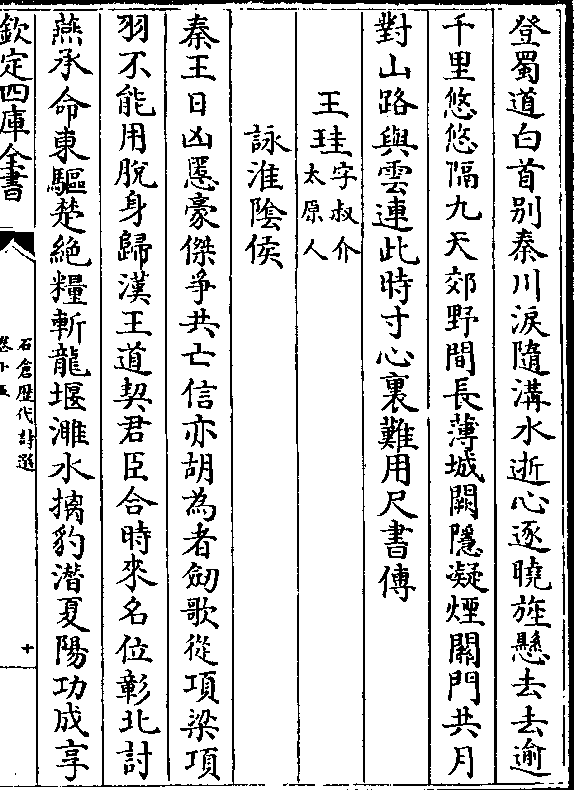 登蜀道白首别秦川淚隨溝水逝心逐曉旌懸去去逾
千里悠悠隔九天郊野間長薄城闕隱凝煙關門共月
對山路與雲連此時寸心裏難用尺書傳
王珪字叔介
太原人
詠淮隂侯
秦王日凶慝豪傑爭共亡信亦胡為者劒歌從項梁項
羽不能用脫身歸漢王道契君臣合時來名位彰北討
燕承命東驅楚絶糧斬龍堰濉水擒豹潛夏陽功成享
欽定四庫全書
石倉歷代詩選
十